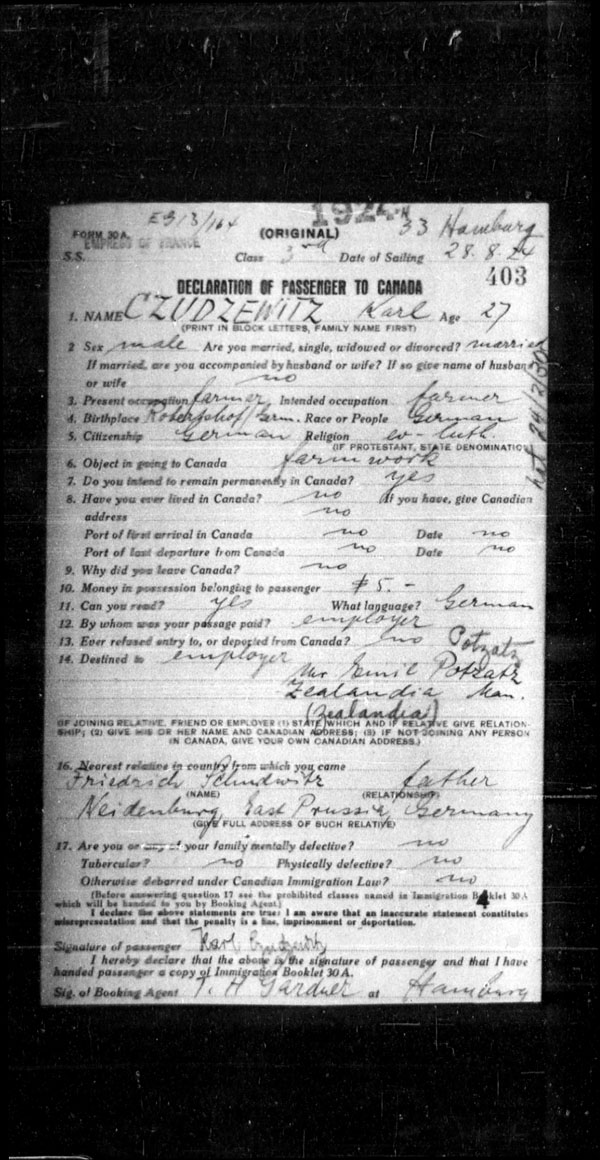 1924
FORM 30 A. E313/164 (ORIGINAL) 33 Hamburg
S.S. EMPRESS OF FRANCE Class 3rd Date of Sailing 28.8.24
403
DECLARATION OF PASSENGER TO CANADA
1. NAME CZUDZEWITZ Karl Age 27
(PRINT IN BLOCK LETTERS, FAMILY NAME FIRST)
2 Sex male Are you married, single, widowed or divorced? married
If married, are you accompanied by husband or wife? If so give name of husband
or wife no
3. Present occupation farmer Intended occupation farmer
4. Birthplace Robertshof/Germ. Race or People German
5. Citizenship German Religion ev-luth.
(IF PROTESTANT, STATE DENOMINATION)
6. Object in going to Canada farmwork
7. Do you intend to remain permanently in Canada? yes
8. Have you ever lived in Canada? no If you have, give Canadian
address no
Port of first arrival in Canada no Date no
Port of last departure from Canada no Date no
9. Why did you leave Canada? no
10. Money in possession belonging to passenger $5.-
11. Can you read? yes What language? German
12. By whom was your passage paid? employer
13. Ever refused entry to, or deported from Canada? no Potzatz
14. Destined to employer
Mr Emil Potzatz
Zealandia Man.
(Zealandia)
OF JOINING RELATIVE, FRIEND OR EMPLOYER (1) STATE WHICH AND IF RELATIVE GIVE RELATION-
SHIP; (2) GIVE HIS OR HER NAME AND CANADIAN ADDRESS; (3) IF NOT JOINING ANY PERSON
IN CANADA, GIVE YOUR OWN CANADIAN ADDRESS.)
16. Nearest relative in country from which you came
Friedrich Schudwitz father
(NAME) (RELATIONSHIP)
Neidenburg, East Prussia, Germany
(GIVE FULL ADDRESS OF SUCH RELATIVE)
17. Are you or any of your family mentally defective? no
Tubercular? no Physically defective? no
Otherwise debarred under Canadian Immigration Law? no
(Before answering question 17 see the prohibited classes named in Immigration Booklet 30 A
which will be handed to you by Booking Agent) 4
I declare the above statements are true: I am aware that an inaccurate statement constitutes
misrepresentation and that the penalty is a fine, imprisonment or deportation.
Signature of passenger Karl
I hereby declare that the above is the signature of passenger and that I have
handed passenger a copy of Immigration Booklet 30 A.
Sig. of Booking Agent T. H Gardner at Hamburg